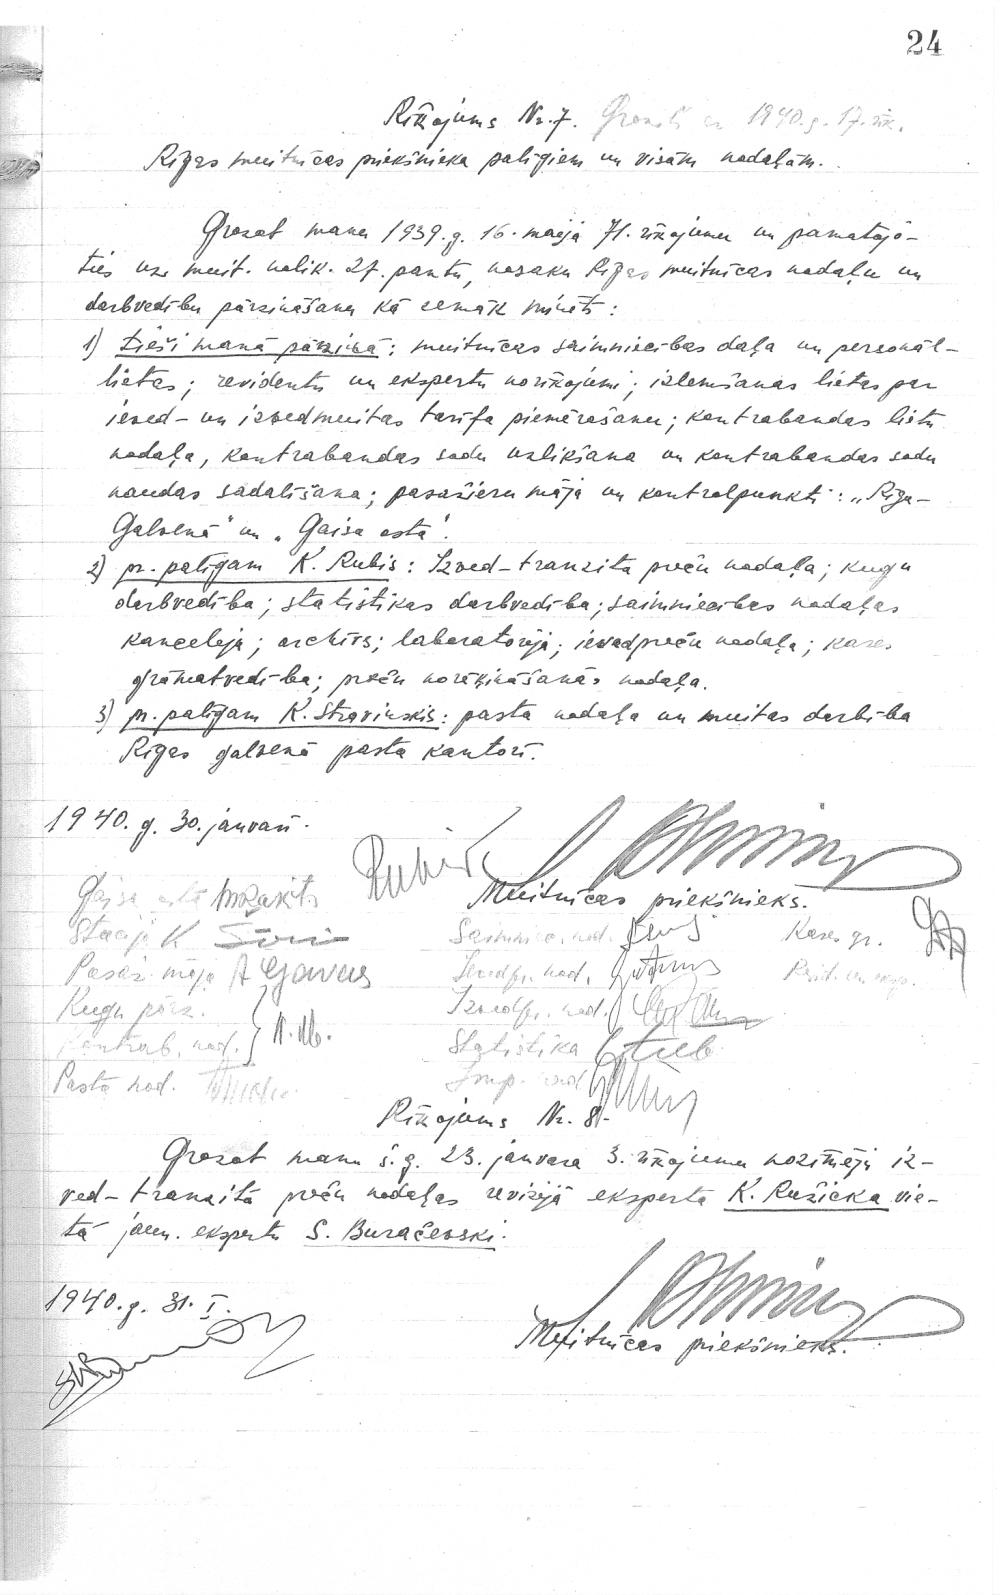 24
Rīkojums Nr. 7. Grozīts ar 1940.g. 17. rīk.
Rīgas muitnīcas priekšnieka palīgiem un visām nodaļām.
Grozot manu 1939.g. 16. maija 71. rīkojumu un pamatojo-
ties uz muit. nolik. 27. pantu, nosaku Rīgas muitnīcas nodaļu un
darbvedību pārzināšanu kā zemāk minēts:
1) tieši manā pārziņā: muitnīcas saimniecības daļa un personāl-
lietas; revidentu un ekspertu norīkojumi; izlemšanas lietas par
ieved- un izvedmuitas tarifa piemērošanu; kontrabandas lietu
nodaļa, kontrabandas sodu uzlikšana un kontrabandas sodu
naudas sadalīšana; pasažieru māja un kontrolpunkti: „Rīga-
Galvenā" un „Gaisa osta".
2) pr. palīgam K. Rubis: Izved-tranzita preču nodaļa; kuģu
darbvedība; statistikas darbvedība; saimniecības nodaļas
kanceleja; archīvs; laboratorija; ievedpreču nodaļa; kases
grāmatvedība; preču norēķināšanās nodaļa.
3) pr. palīgam K. Stravinskis: pasta nodaļa un muitas darbība
Rīgas galvenā pasta kantorī.
1940. g. 30. janvārī.
Rubis
Muitnīcas priekšnieks.
Gaisa ostā
Stacijā K
Saimniec. nod.
Kases gr.
Pasaž. māja A
Ievedpr. nod.
Kuģu pārz.
Izvedpr. nod.
Kontrab. nod.
Statistika
Pasta nod.
Imp. nod.
Rīkojums Nr. 8.
Grozot manu š.g. 23. janvara 3. rīkojumu nozīmēju iz-
ved-tranzitā preču nodaļas revīzijā eksperta K. Ružicka vie-
tā jaun. ekspertu S. Buračevski.
1940. g. 31. I.
Muitnīcas priekšnieks.